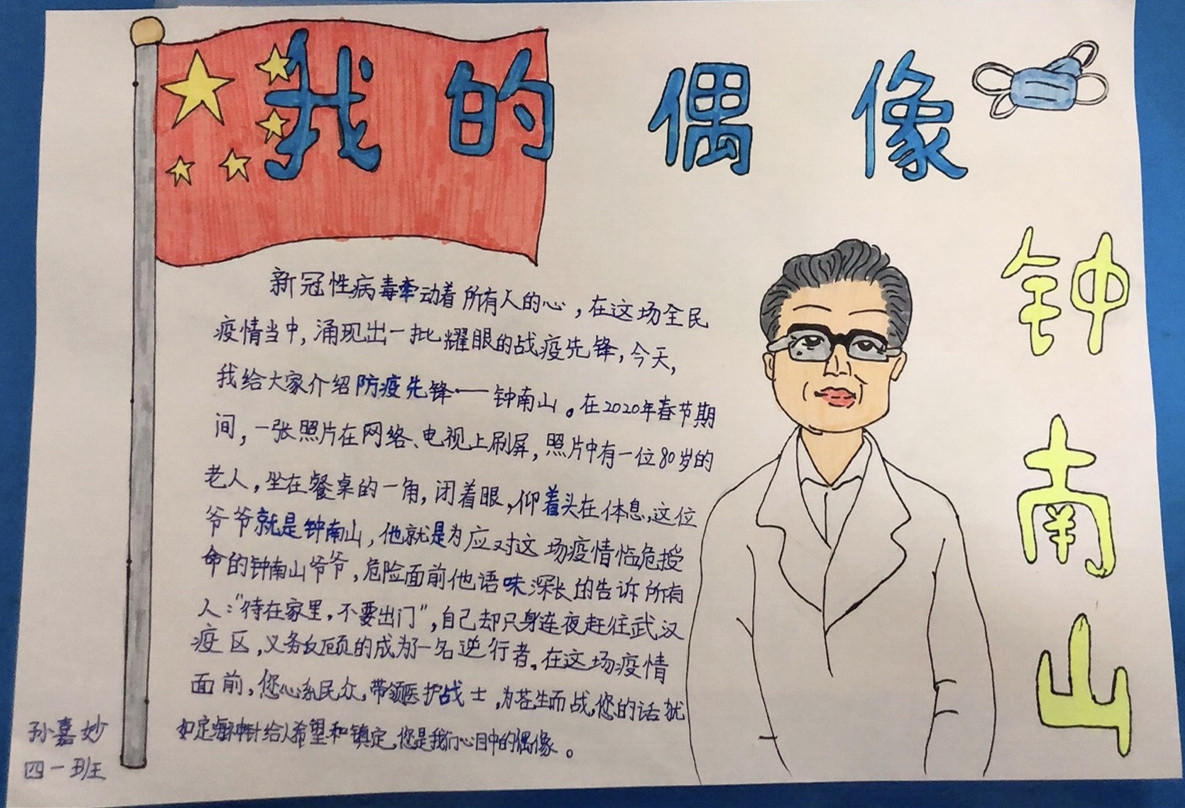 我的偶像
钟南山
新冠性病毒牵动着所有人的心，在这场全民
疫情当中，涌现出一批耀眼的战疫先锋，今天，
我给大家介绍防疫先锋——钟南山。在2020年春节期
间，一张照片在网络、电视上刷屏，照片中有一位80岁的
老人，坐在餐桌的一角，闭着眼，仰着头在休息，这位
爷爷就是钟南山，他就是为应对这场疫情临危授
命的钟南山爷爷，危险面前他语味深长的告诉所有
人：“待在家里，不要出门”，自己却只身连夜赶往武汉
疫区，义务反顾的成为了一名逆行者。在这场疫情
面前，您心系民众，带领医护战士，为苍生而战，您的话就
如定海神针给人希望和镇定，您是我们心目中的偶像。
孙嘉妙
四一班